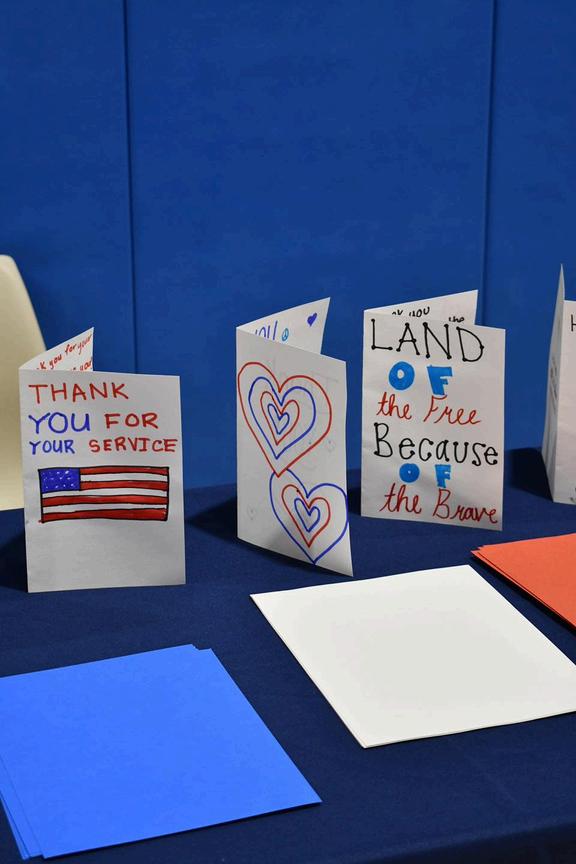 k you for your
you!
THANK
YOU FOR
YOUR SERVICE
YOU
k you
the
LAND
OF
the Free
Because
OF
the Brave
H